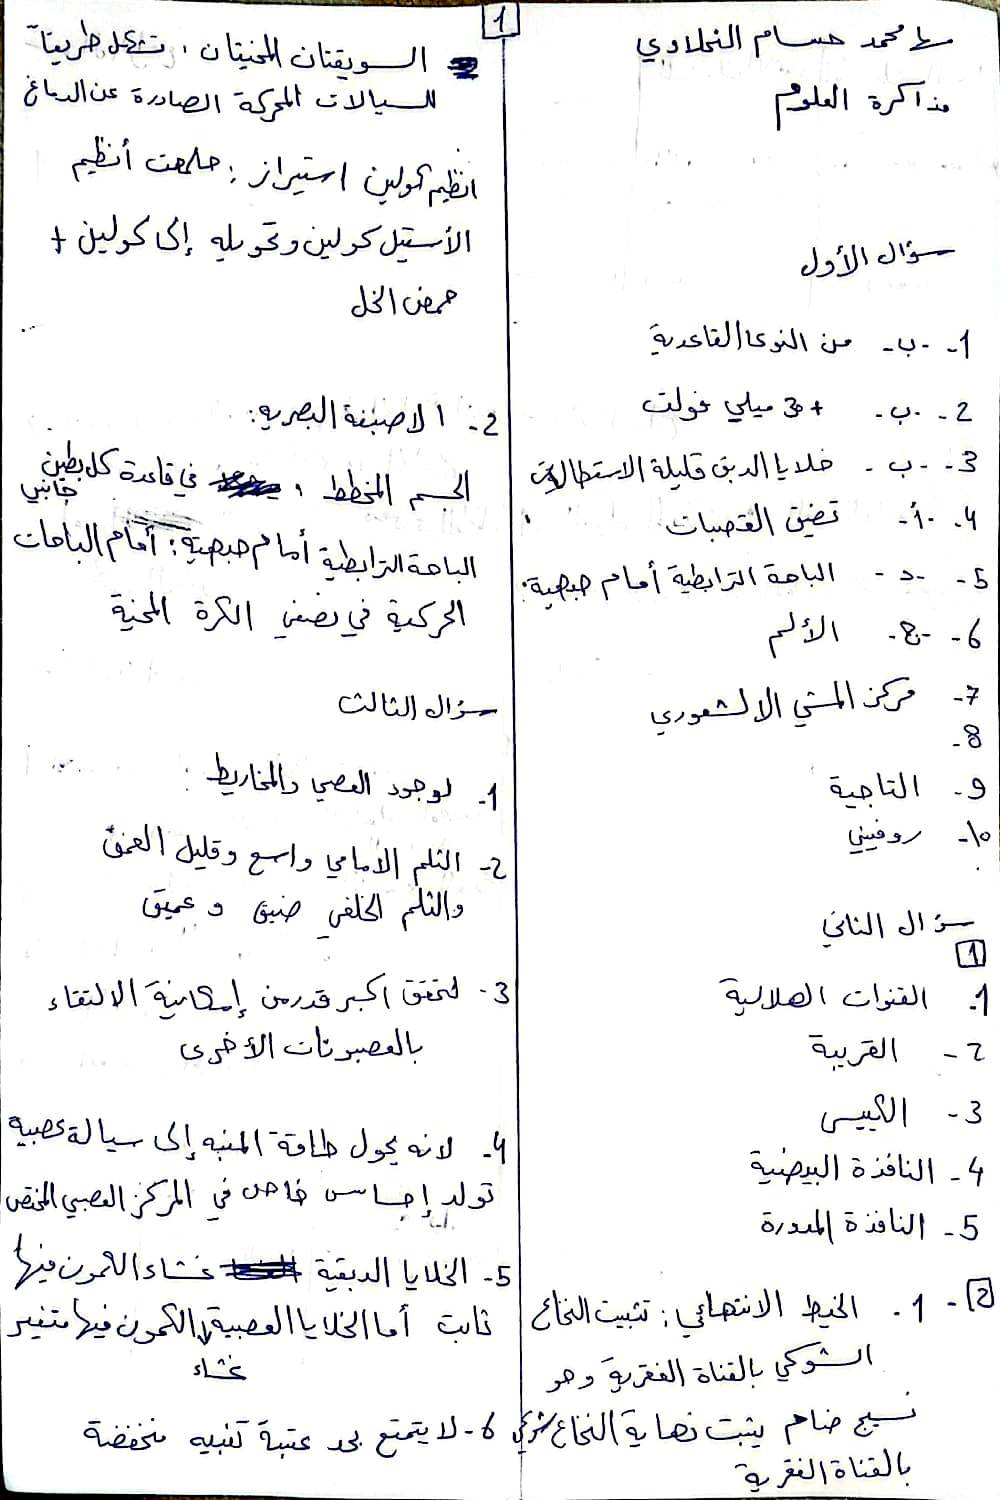 سها محمد حسام النحلاوي
مذاكرة العلوم
سؤال الأول
1- ب- من النوع القاعدية
2- ب- +30 ميلي فولت
3- ب- خلايا الدبق قليلة الاستطالات
4- أ- تضيق القصبات
5- د- الباحة الترابطية أمام جبهية:
6- ج- الألم
7- مركز المشي اللاشعوري
8-
9- التاجية
10- روفيني
سؤال الثاني
1
1- القنوات الهلالية
2- القريبة
3- الكييس
4- النافذة البيضية
5- النافذة المدورة
2- 1- الخيط الانتهائي: تثبيت النخاع
الشوكي بالقناة الفقرية وهو
نسيج ضام يثبت نهاية النخاع شوكي
بالقناة الفقرية
1
السويقتان المخيتان: تشكل طريقاً
للسيالات المحركة الصادرة عن الدماغ
انظيم كولين استيراز: حلمهت أنظيم
الأستيل كولين وتحويله إلى كولين +
حمض الخل
2- الاصبغة البصرية:
الجسم المخطط: في قاعدة كل بطين
جانبي
الباحة الترابطية أمام جبهية: أمام الباحات
الحركية في نصفي الكرة المخية
سؤال الثالث
1- لوجود العصي والمخاريط:
2- الثلم الأمامي واسع وقليل العمق
والثلم الخلفي ضيق و عميق
3- لتحقق اكبر قدر من إمكانية الالتقاء
بالعصبونات الأخرى
4- لانه يحول طاقة المنبه إلى سيالة عصبية
تولد إحساس خاص في المركز العصبي المختص
5- الخلايا الدبقية غشاء الكمون فيها
ثابت أما الخلايا العصبية الكمون فيها متغير
غشاء
6- لا يتمتع بحد عتبة تنبيه منخفضة